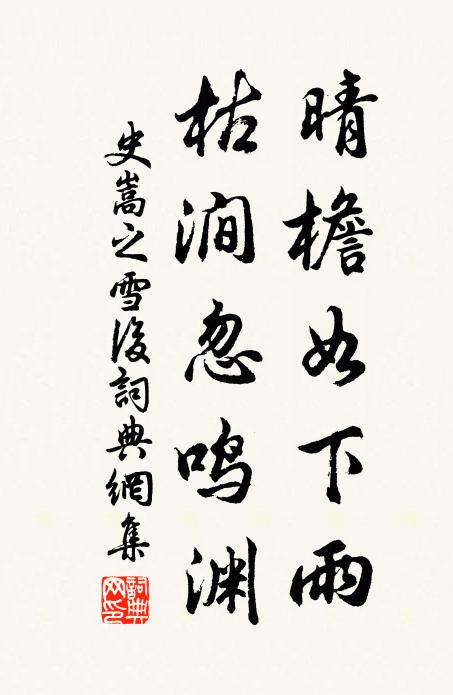 晴檐如下雨
枯涧忽鸣渊
史嵩之雪後詞典網集
詞典网印